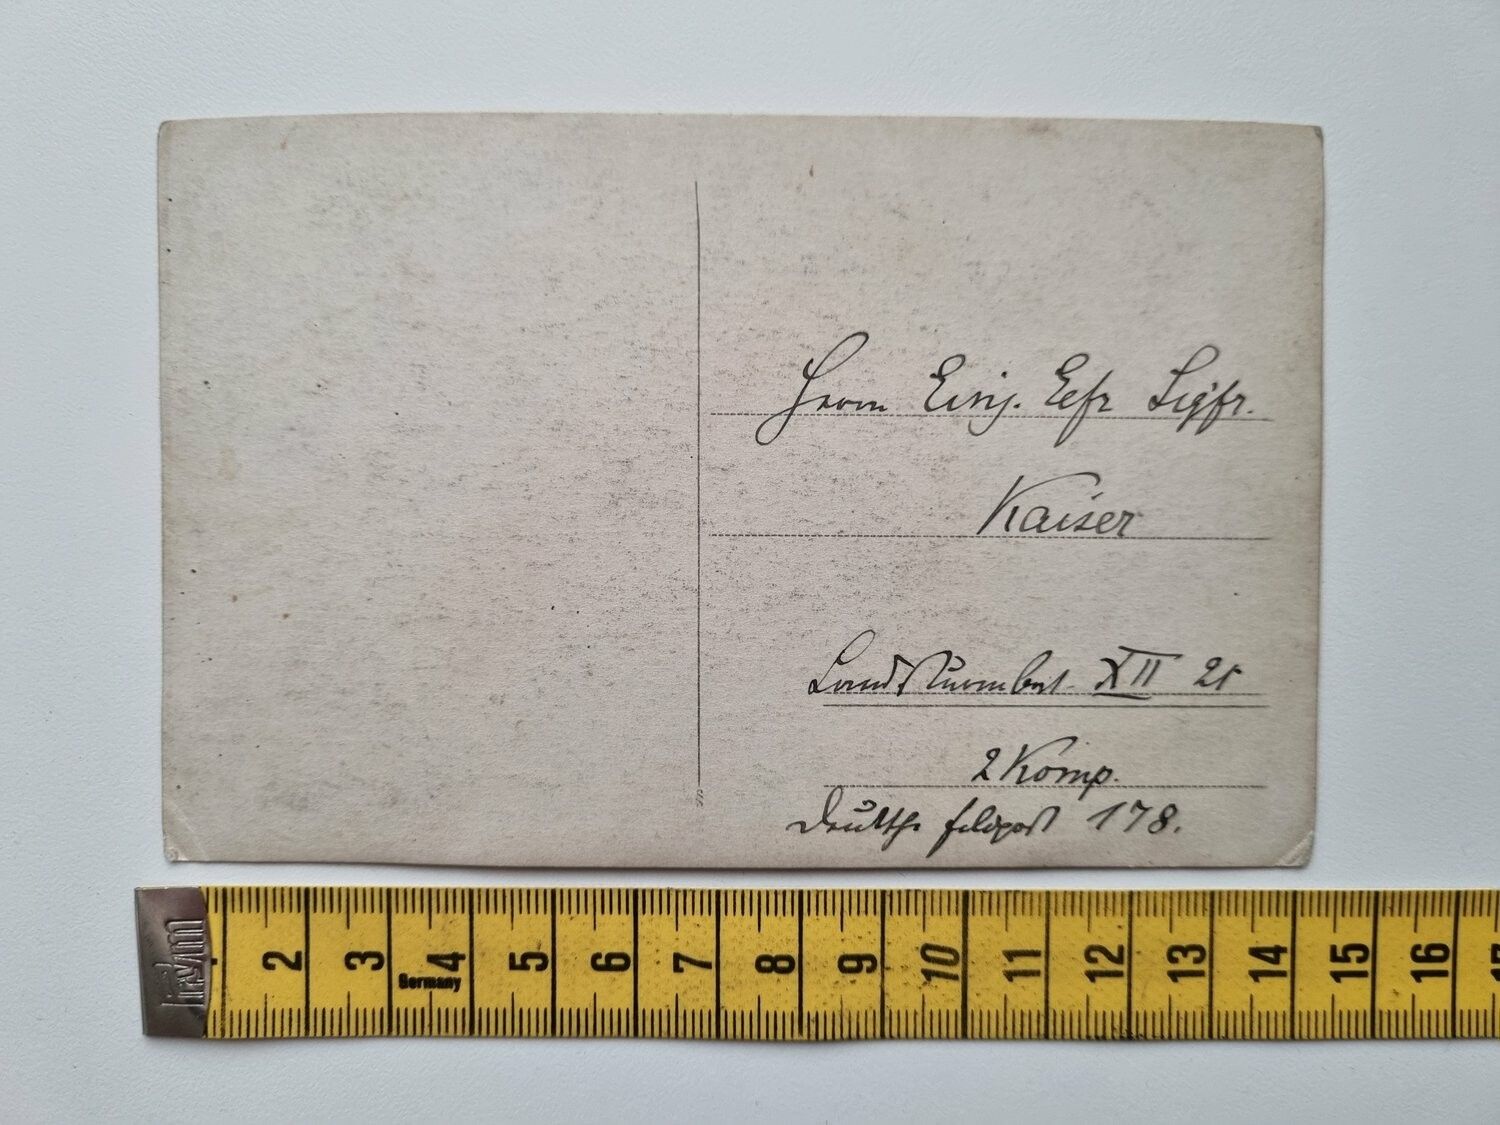 Herrn Einj. Gefr Sigfr.
Kaiser
Landsturmbat. XII 21
2 Komp.
Deutsche Feldpost 178.
2 3 4 5 6 7 8 9 10 11 12 13 14 15 16
Germany
Prym